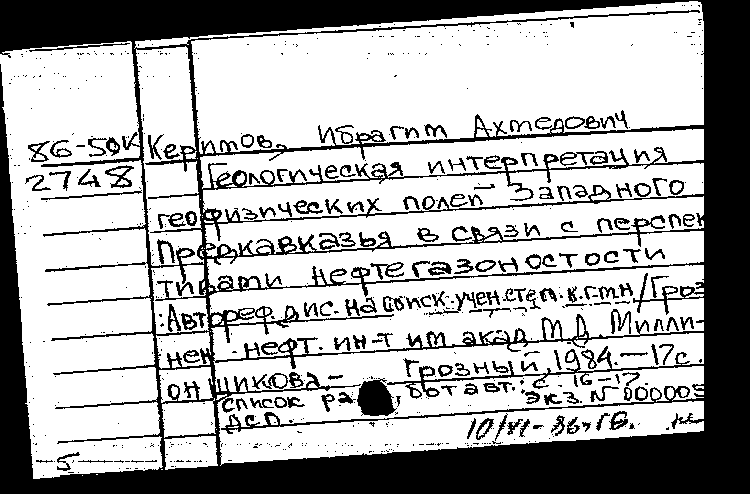 86-50К Керимов, Ибрагим Ахмедович
2748 Геологическая интерпретация
геофизических полей Западного
Предкавказья в связи с перспек
тивами нефтегазоностости
:Автореф.дис. на соиск.учен.степ.к.г.м.н/Гроз
нен. нефт. ин-т им. акад. М.Д. Милли-
онщикова.- Грозный, 1984.-17с.
Список ра , бот авт.: с. 16-17
ДСП. Экз. N 000005
10/XI- 86г
5